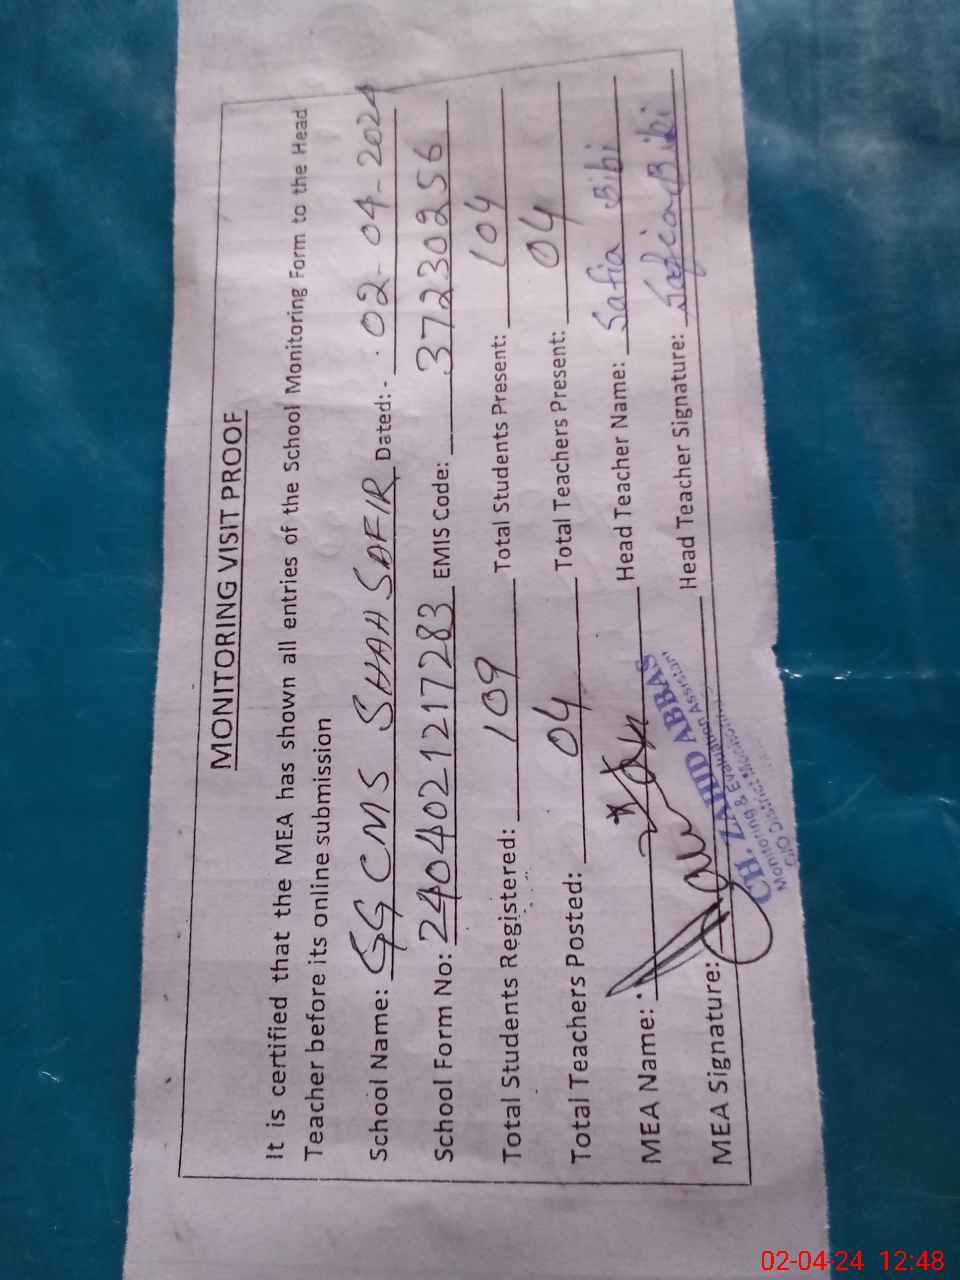 MONITORING VISIT PROOF
It is certified that the MEA has shown all entries of the School Monitoring Form to the Head
Teacher before its online submission
School Name: GGCMS SHAH SAFIR Dated:- 02-04-2024
School Form No: 2404021217283 EMIS Code: 37230256
Total Students Registered: 109 Total Students Present: 104
Total Teachers Posted: 04 Total Teachers Present: 04
MEA Name: Head Teacher Name: Safia Bibi
MEA Signature: Head Teacher Signature: Safia Bibi
CH. ZAHID ABBAS
Monitoring & Evaluation Assistant
O/O District Monitoring
02-04-24 12:48